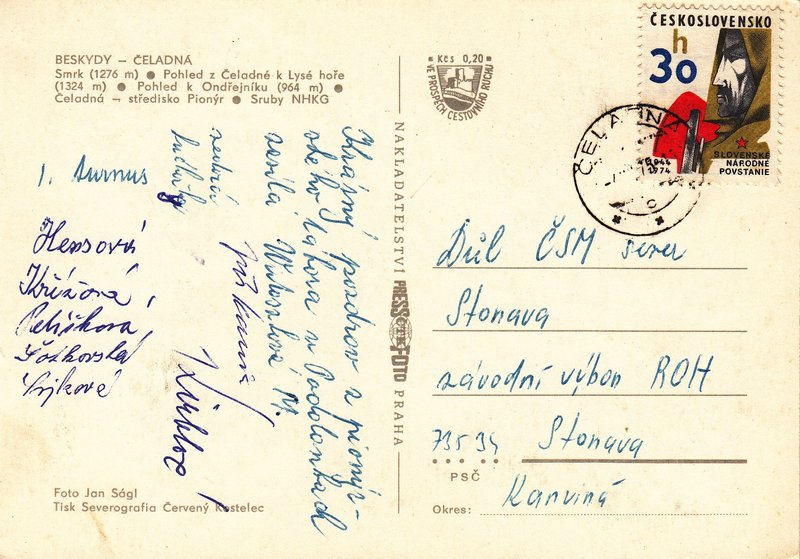 BESKYDY – ČELADNÁ
Smrk (1276 m) ● Pohled z Čeladné k Lysé hoře
(1324 m) ● Pohled k Ondřejníku (964 m) ●
Čeladná – středisko Pionýr ● Sruby NHKG
Kčs 0,20
VE PROSPĚCH CESTOVNÍHO RUCHU
ČESKOSLOVENSKO
h
30
1944
1974
SLOVENSKÉ
NÁRODNÉ
POVSTANIE
ČELADNÁ
c
Krásný pozdrav z pionýr-
ského tábora v Podolánkách
zasílá
1. turnus
Křížová,
Peliškova,
NAKLADATELSTVÍ PRESSFOTO PRAHA
ČTK
Důl ČSM sever
Stonava
závodní výbor ROH
735 34 Stonava
PSČ
Okres: Karviná
Foto Jan Ságl
Tisk Severografia Červený Kostelec